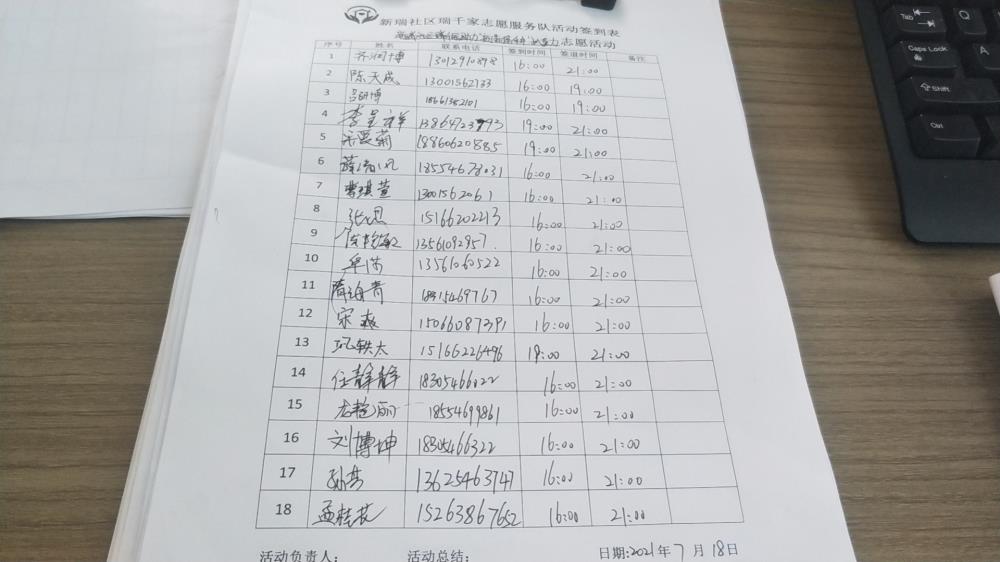 新瑞社区瑞千家志愿服务队活动签到表
力志愿活动
序号 姓名 联系电话 签到时间 签退时间 备注
1 齐润博 13012910898 16:00 21:00
2 陈天成 13001562733 16:00 19:00
3 吕研博 18661352101 16:00 19:00
4 李呈祥 1386472 16:00 21:00
5 18860620885 19:00 21:00
6 18554678031 16:00 21:00
7 曹琪萱 13001562061 16:00 21:00
8 张思 15166202213 16:00 21:00
9 13561092957 16:00 21:00
10 单芳 13561060522 16:00 21:00
11 青 5469767 16:00 21:00
12 宋燕 15066087391 16:00 21:00
13 巩轶太 15166226496 19:00 21:00
14 任静静 18305466022 16:00 21:00
15 尤艳丽 18554699861 16:00 21:00
16 刘博坤 18305466322 16:00 21:00
17 孙燕 13625463747 16:00 21:00
18 孟桂花 15263867652 16:00 21:00
活动负责人: 活动总结: 日期:2021年7月18日
Tab
Caps Lock
Shift
Ctrl
A